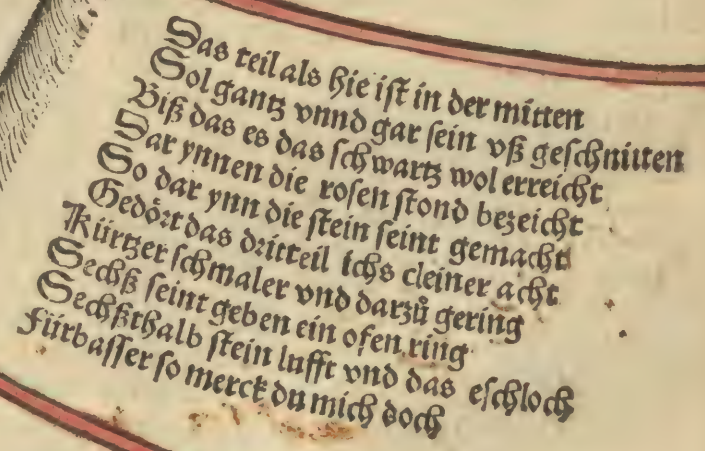 Das teil als hie ist in der mitten
Sol gantz vnnd gar sein vß geschnitten
Biß das es das schwartz wol erreicht
Dar ynnen die rosen stond bezeicht
So dar ynn die stein seint gemacht
Gedört das dritteil ichs cleiner acht
Kürtzer schmaler vnd darzů gering
Sechß seint geben ein ofen ring
Sechßthalb stein lufft vnd das eschloch
Fürbasser so merck du mich doch